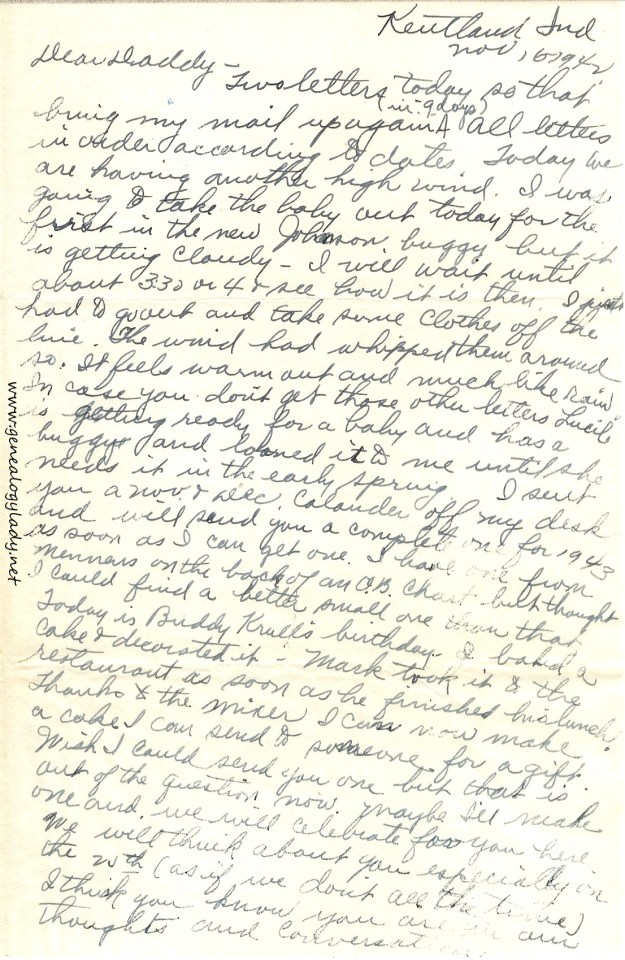 Kentland Ind
Nov, 16 1942
Dear Daddy –
Two letters today so that
(in 9 days)
bring my mail up again A All letters
in order according to dates Today we
are having another high wind. I was
going to take the baby out today for the
first in the new Johnson buggy but it
is getting cloudy – I will wait until
about 3:30 or 4 & see how it is then. I just
had to go out and take some clothes off the
line. The wind had whipped them around
so. It feels warm out and much like rain.
In case you don't get those other letters Lucile
is getting ready for a baby and has a
buggy and loaned it to me until she
needs it in the early spring I sent
you a Nov. & Dec. Calander off my desk
and will send you a complete one for 1943
as soon as I can get one. I have one from
Mennens on the back of an O.B. Chart but thought
I could find a better small one than that.
Today is Buddy Krull's birthday. I baked a
cake & decorated it – Mark took it to the
restaurant as soon as he finished his lunch.
Thanks to the mixer I can now make
a cake I can send to someone for a gift.
Wish I could send you one but that is
out of the question now. Maybe I'll make
one and we will celebrate for you here.
We will think about you especially on
the 20th (as if we dont all the time)
I think you know you are in our
thoughts and conversation
www.genealogylady.net